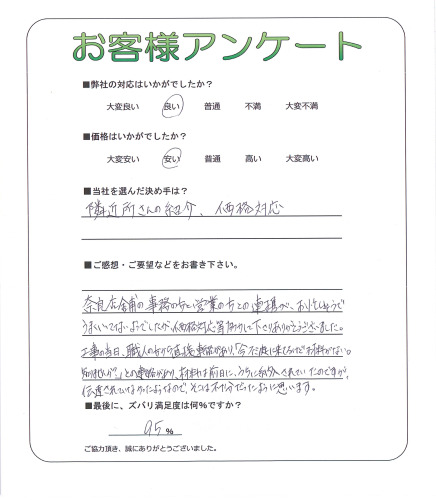 お客様アンケート
■弊社の対応はいかがでしたか？
大変良い 良い 普通 不満 大変不満
■価格はいかがでしたか？
大変安い 安い 普通 高い 大変高い
■当社を選んだ決め手は？
隣近所さんの紹介、価格対応
■ご感想・ご要望などをお書き下さい。
奈良店舗の事務の方と営業の方との連携が、おいそがしそうで
うまくいってないようでしたが、価格対応等 して下さりありがとうございました。
工事の当日、職人の方から直接電話があり、今 に来てるけど材料がない。
知りませんか？」との電話があり、材料は前日に、うちに納入されていたのですが、
伝達されていなかったようなので、そこは不十分だったように思います。
■最後に、ズバリ満足度は何%ですか？
95 %
ご協力頂き、誠にありがとうございました。